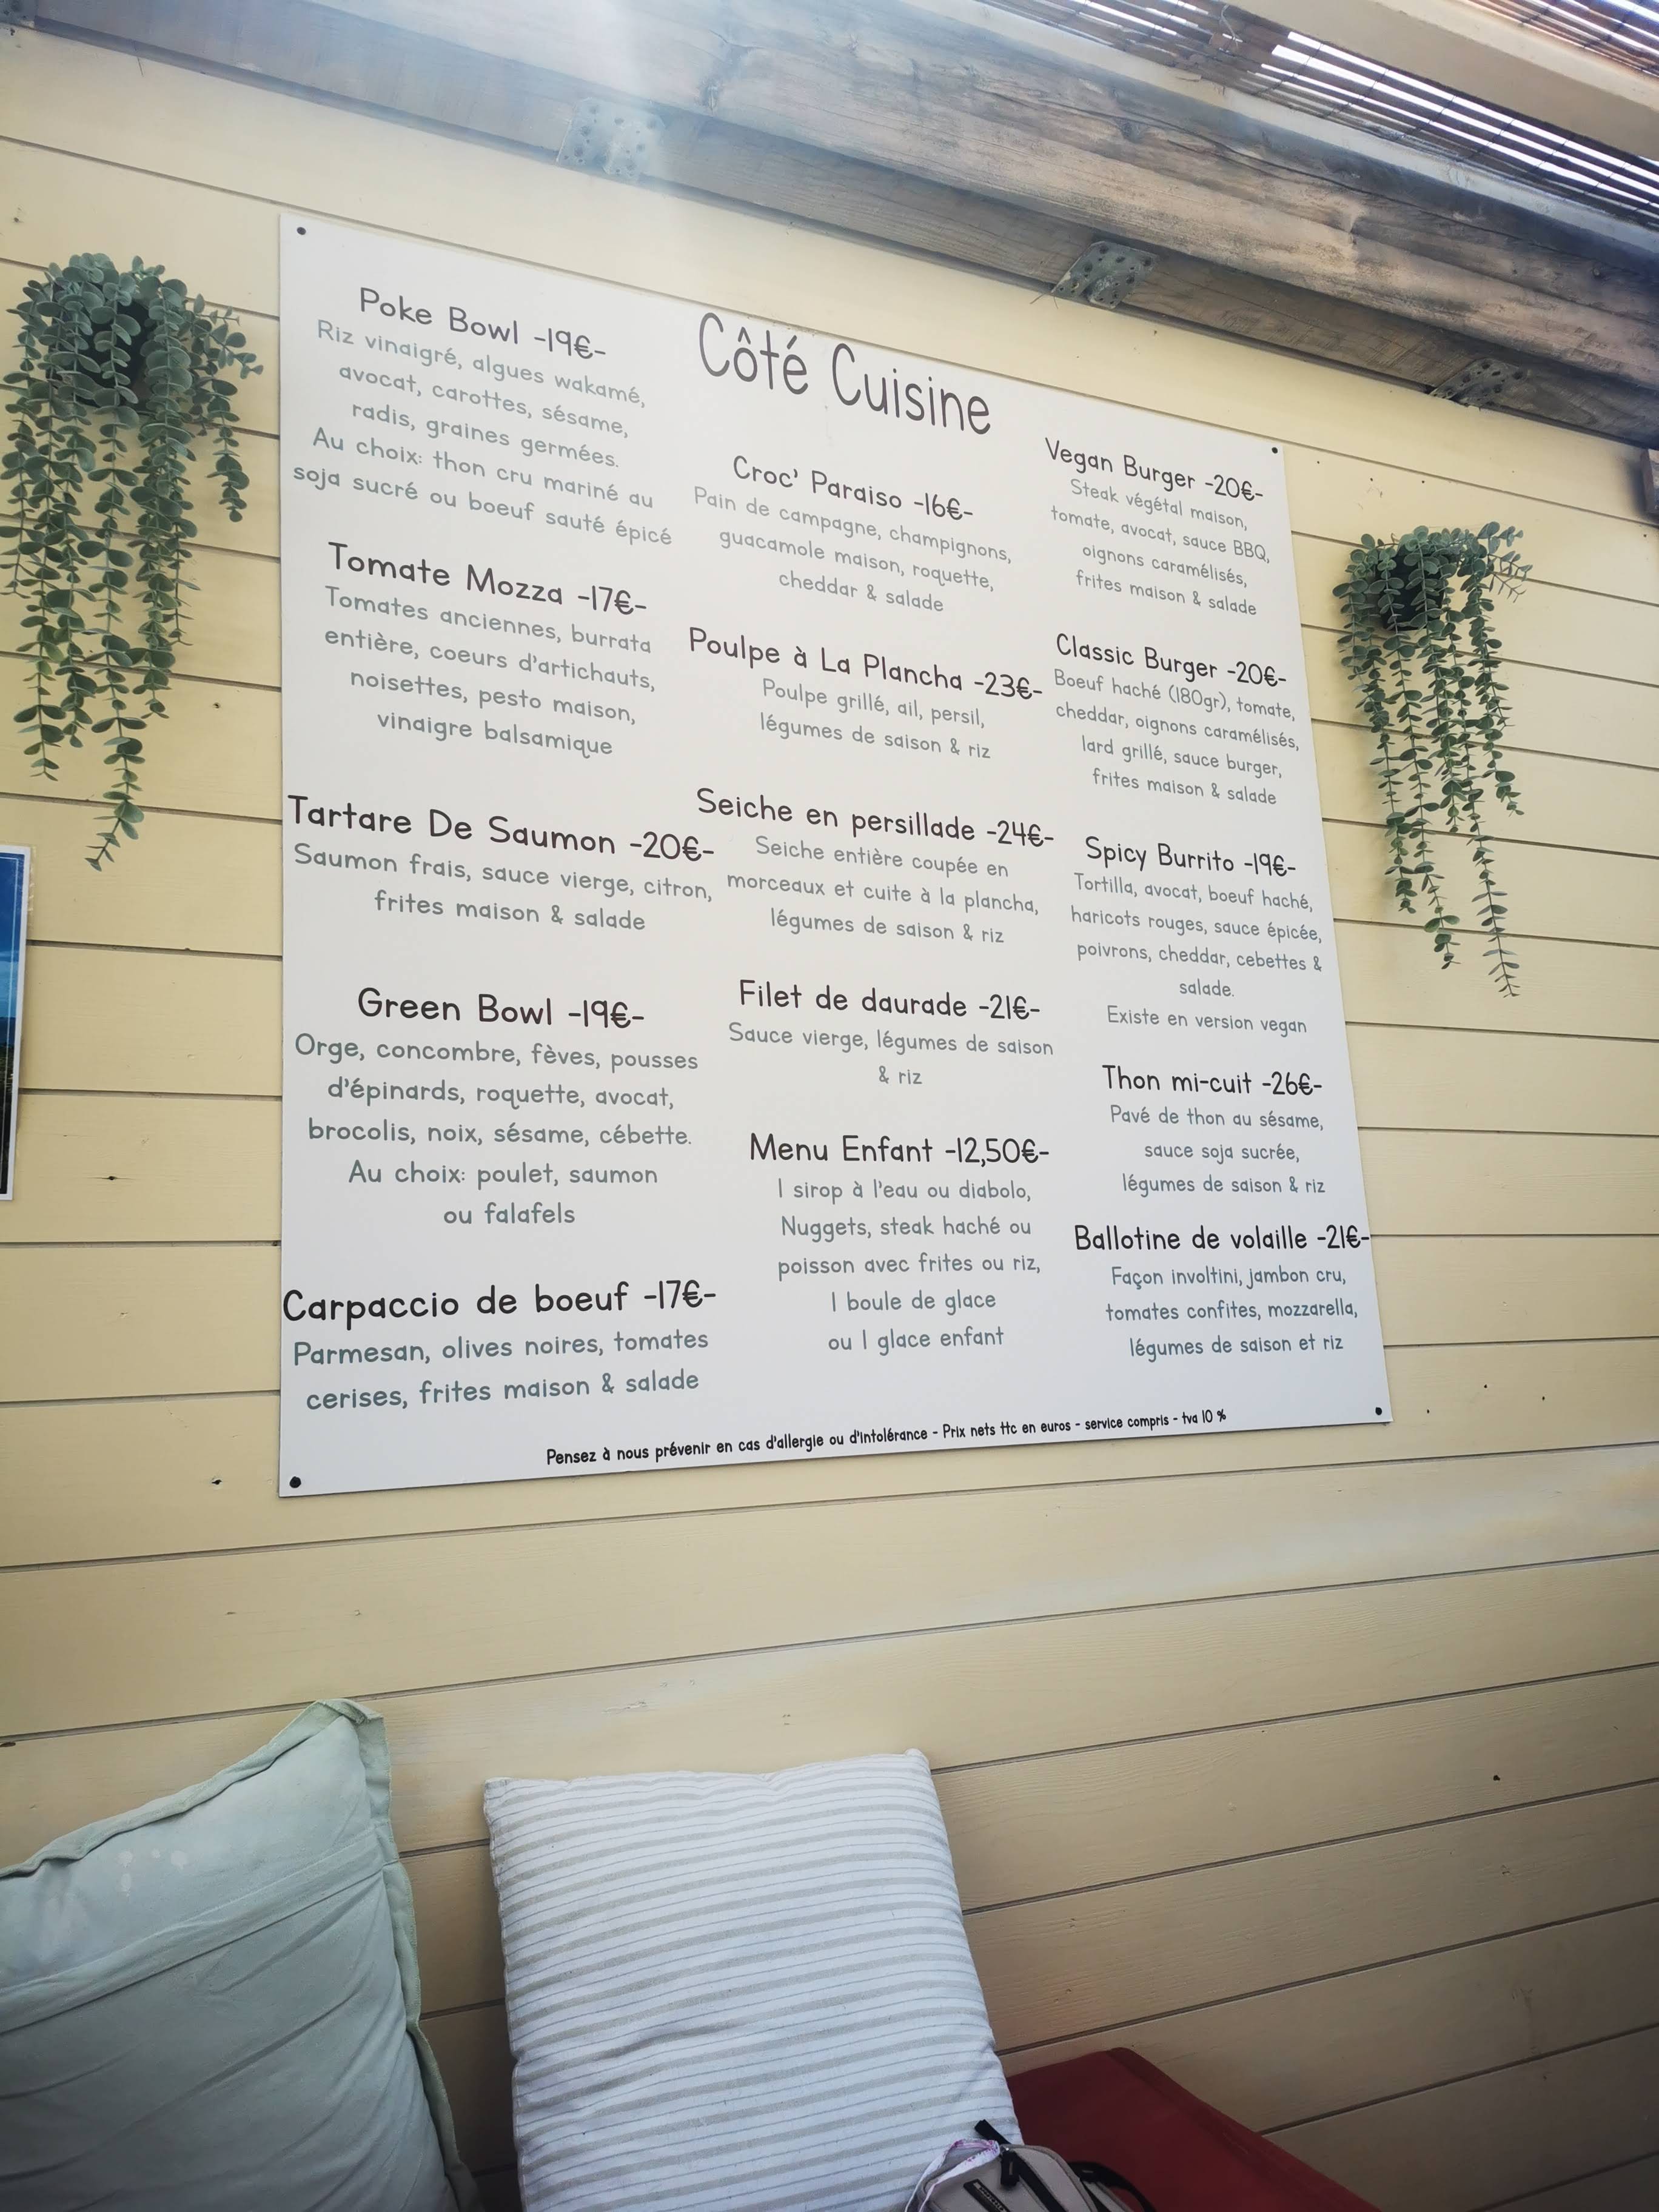 Côté Cuisine
Poke Bowl -19€-
Riz vinaigré, algues wakamé,
avocat, carottes, sésame,
radis, graines germées.
Au choix: thon cru mariné au
soja sucré ou boeuf sauté épicé
Tomate Mozza -17€-
Tomates anciennes, burrata
entière, coeurs d'artichauts,
noisettes, pesto maison,
vinaigre balsamique
Tartare De Saumon -20€-
Saumon frais, sauce vierge, citron,
frites maison & salade
Green Bowl -19€-
Orge, concombre, fèves, pousses
d'épinards, roquette, avocat,
brocolis, noix, sésame, cébette.
Au choix: poulet, saumon
ou falafels
Carpaccio de boeuf -17€-
Parmesan, olives noires, tomates
cerises, frites maison & salade
Croc' Paraiso -16€-
Pain de campagne, champignons,
guacamole maison, roquette,
cheddar & salade
Poulpe à La Plancha -23€-
Poulpe grillé, ail, persil,
légumes de saison & riz
Seiche en persillade -24€-
Seiche entière coupée en
morceaux et cuite à la plancha,
légumes de saison & riz
Filet de daurade -21€-
Sauce vierge, légumes de saison
& riz
Menu Enfant -12,50€-
1 sirop à l'eau ou diabolo,
Nuggets, steak haché ou
poisson avec frites ou riz,
1 boule de glace
ou 1 glace enfant
Vegan Burger -20€-
Steak végétal maison,
tomate, avocat, sauce BBQ,
oignons caramélisés,
frites maison & salade
Classic Burger -20€-
Boeuf haché (180gr), tomate,
cheddar, oignons caramélisés,
lard grillé, sauce burger,
frites maison & salade
Spicy Burrito -19€-
Tortilla, avocat, boeuf haché,
haricots rouges, sauce épicée,
poivrons, cheddar, cebettes &
salade.
Existe en version vegan
Thon mi-cuit -26€-
Pavé de thon au sésame,
sauce soja sucrée,
légumes de saison & riz
Ballotine de volaille -21€-
Façon involtini, jambon cru,
tomates confites, mozzarella,
légumes de saison et riz
Pensez à nous prévenir en cas d'allergie ou d'intolérance - Prix nets ttc en euros - service compris - tva 10 %